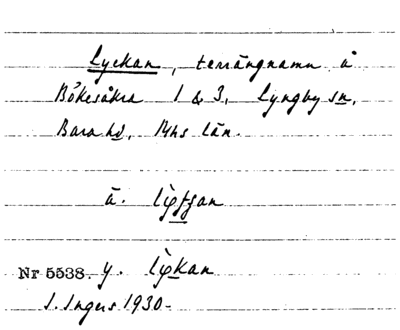 Lyckan, terrängnamn å
Bökesåkra 1 & 3, Lyngby sn,
Bara hd, Mhs län.
ä. lỳftjan
Nr 5538. y. lỳkan
I. Ingers 1930-